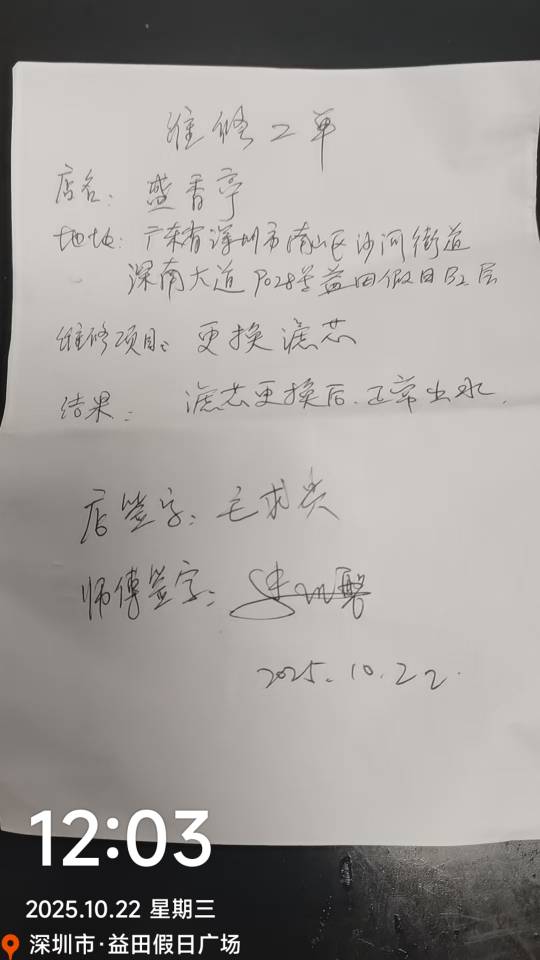 维修工单
店名: 盛香亭
地址: 广东省深圳市南山区沙河街道
深南大道9028号益田假日B2层
维修项目: 更换滤芯
结果: 滤芯更换后.正常出水.
店签字: 毛求
师傅签字:
2025.10.22.
12:03
2025.10.22 星期三
深圳市·益田假日广场